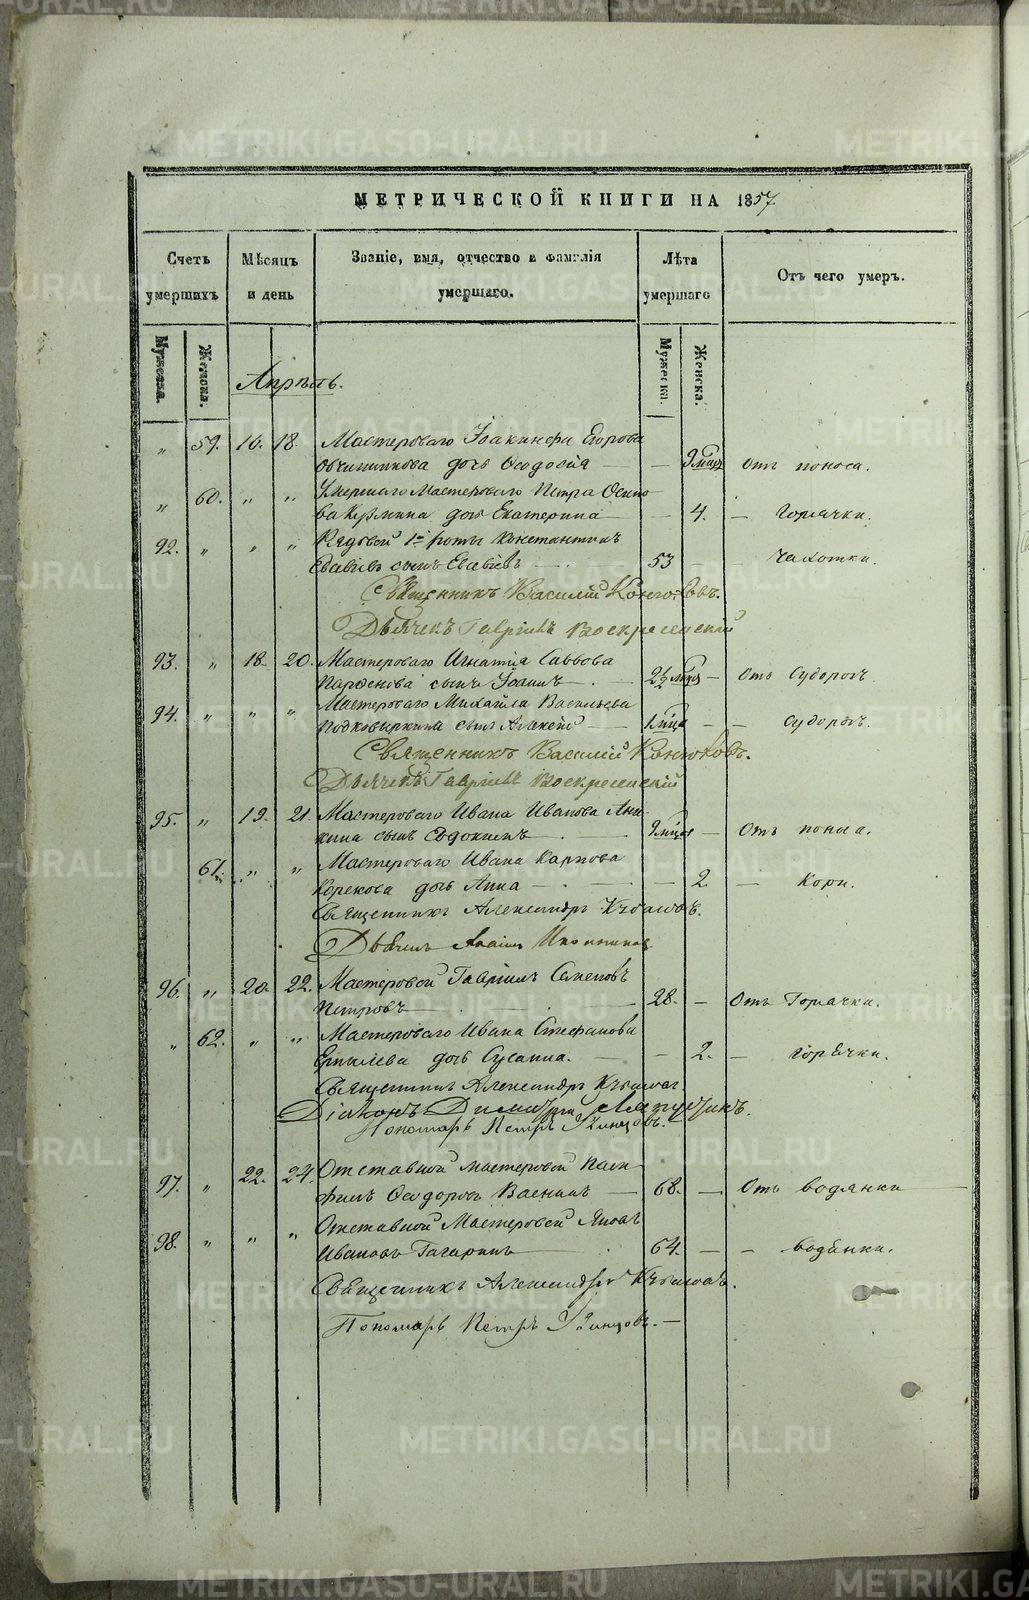 МЕТРИЧЕСКОЙ КНИГИ НА 1857
Счетъ умершихъ
Мѣсяцъ и день
Званіе, имя, отчество и фамилія умершаго.
Лѣта умершаго
Отъ чего умеръ.
Мужеска.
Женска.
Мужеска.
Женска.
Апрѣль.
„ 59. 16. 18. Мастероваго Іоакинфа Егорова
Овчинникова дочь Ѳеодосія — — 9 мцсв Отъ поноса.
„ 60. „ „ Умершаго Мастероваго Петра Осипо
ва дочь Екатерина — — 4. — Горячки.
92. „ „ „ Рядовой 1й роты Константинъ
сынъ — 53 — Чахотки.
Священникъ Василій Конюховъ.
Дьячекъ Гавріилъ Воскресенскій
93. „ 18. 20. Мастероваго Игнатія Саввова
Парѳенова сынъ Іоаннъ — — Отъ Судорогъ.
94. „ „ „ Мастероваго Михаила Васильева
Подковыркина сынъ Алексей — 1 мца — — судорогъ.
Священникъ Василій Конюховъ.
Дьячекъ Гавріилъ Воскресенскій
95. „ 19. 21. Мастероваго Ивана Иванова Ани
кина сынъ Евдокимъ — 9 мцов — Отъ поноса.
61. „ „ Мастероваго Ивана Карпова
Корекова дочь Анна — — 2. — Кори.
Священникъ Александръ
Дьячекъ
96. „ 20. 22. Мастеровой Гавріилъ Семеновъ
Петровъ — 28. — Отъ Горячки.
„ 62. „ „ Мастероваго Ивана Стефанова
дочь Сусанна. — — 2. — горячки.
Священникъ Александръ
Діаконъ Димитрій
Пономарь Петръ
97. „ 22. 24. Отставной мастеровой
Ѳеодоровъ — 68. — Отъ водянки
98. „ „ „ Отставной Мастеровой Яковъ
Ивановъ Гагаринъ — 64. — — водянки.
Священникъ Александръ
Пономарь Петръ
METRIKI.GASO-URAL.RU